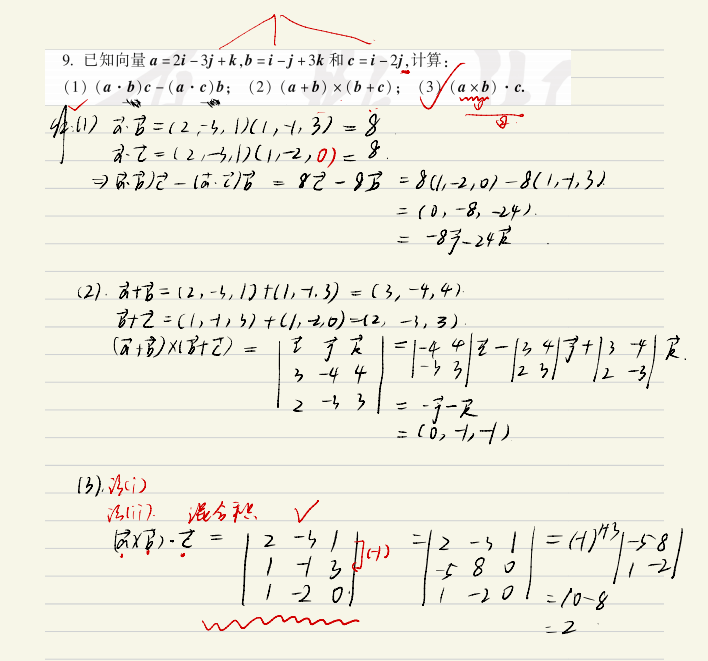 9. 已知向量 a=2i-3j+k,b=i-j+3k 和 c=i-2j,计算:
(1) (a·b)c-(a·c)b; (2) (a+b)×(b+c); (3) (a×b)·c.
(1) a⃗·b⃗=(2,-3,1)(1,-1,3)=8
a⃗·c⃗=(2,-3,1)(1,-2,0)=8.
⇒(a⃗·b⃗)c⃗-(a⃗·c⃗)b⃗ = 8c⃗-8b⃗ = 8(1,-2,0)-8(1,-1,3)
= (0,-8,-24).
= -8j⃗-24k⃗
(2). a⃗+b⃗=(2,-3,1)+(1,-1,3)=(3,-4,4).
b⃗+c⃗=(1,-1,3)+(1,-2,0)=(2,-3,3).
(a⃗+b⃗)×(b⃗+c⃗) = |i⃗ j⃗ k⃗| = |-4 4| i⃗ - |3 4| j⃗ + |3 -4| k⃗.
3 -4 4 -3 3 2 3 2 -3
2 -3 3 = -j⃗-k⃗
= (0,-1,-1)
(3). 法(i)
法(ii). 混合积 ✓
(a⃗×b⃗)·c⃗ = |2 -3 1| (-1) = |2 -3 1| = (-1)¹⁺³ |-5 8|
1 -1 3 -5 8 0 1 -2
1 -2 0 1 -2 0 =10-8
=2